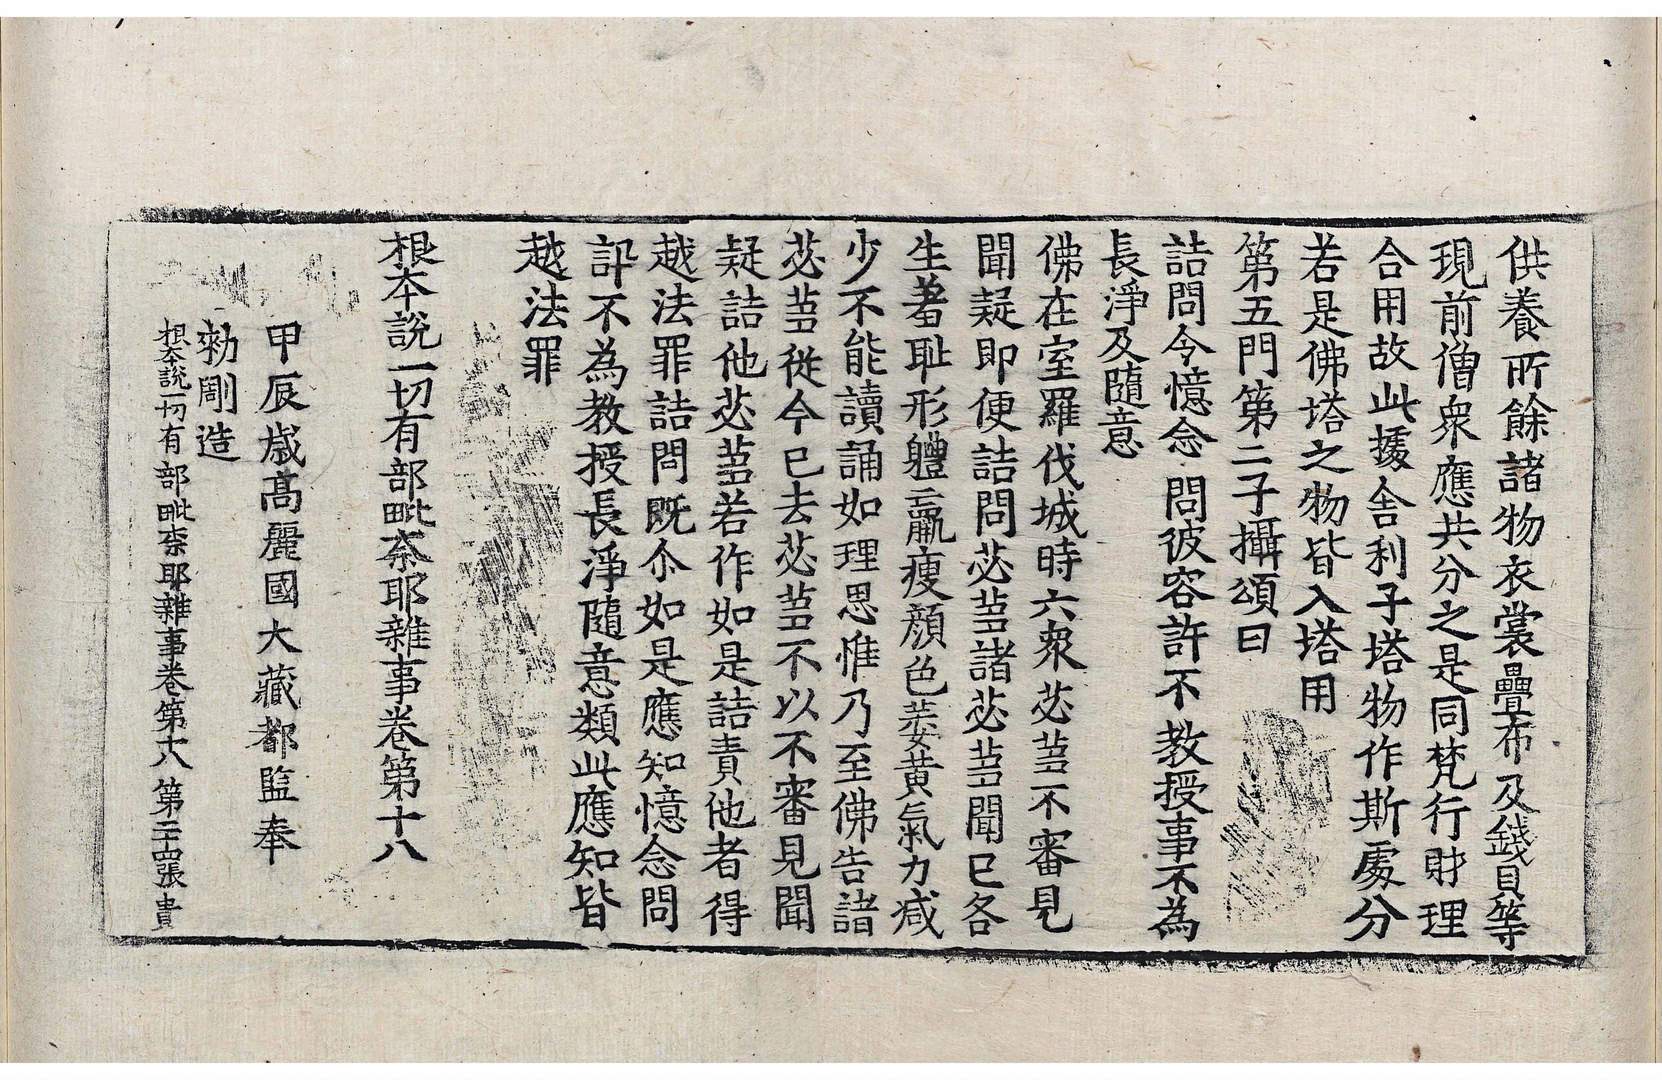 供養所餘諸物衣裳疊布及錢貝等
現前僧衆應共分之是同梵行財理
合用故此據舍利子塔物作斯處分
若是佛塔之物皆入塔用
第五門第二子攝頌曰
詰問令憶念 問彼容許不 教授事不為
長淨及隨意
佛在室羅伐城時六衆苾芻不審見
聞疑即便詰問苾芻諸苾芻聞已各
生著恥形軆羸瘦顔色萎黄氣力减
少不能讀誦如理思惟乃至佛告諸
苾芻從今已去苾芻不以不審見聞
疑詰他苾芻若作如是詰責他者得
越法罪詰問既尒如是應知憶念問
訃不為教授長淨隨意類此應知皆
越法罪
根本說一切有部毗奈耶雜事卷第十八
甲辰歳髙麗國大藏都監奉
勑彫造
根本說一切有部毗奈耶雜事卷第十八 第二十四張 貴